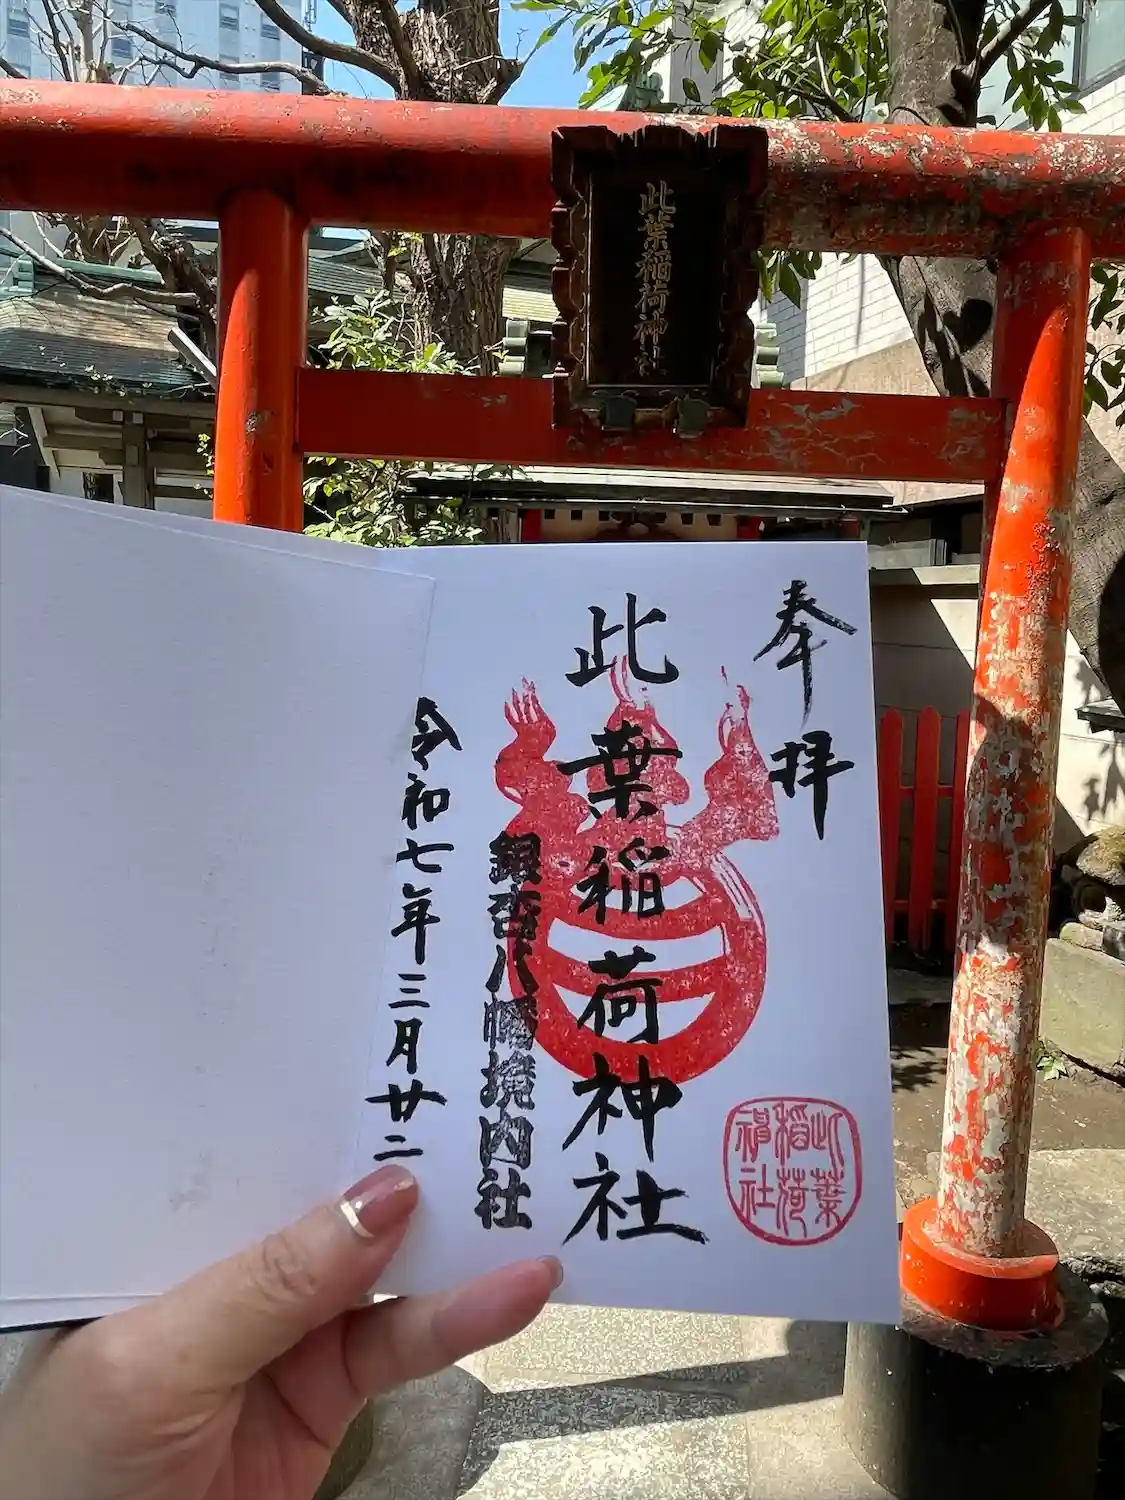 此葉稲荷神社
奉拝
此葉稲荷神社
銀杏八幡境内社
令和七年三月廿二
此葉
稲荷
神社